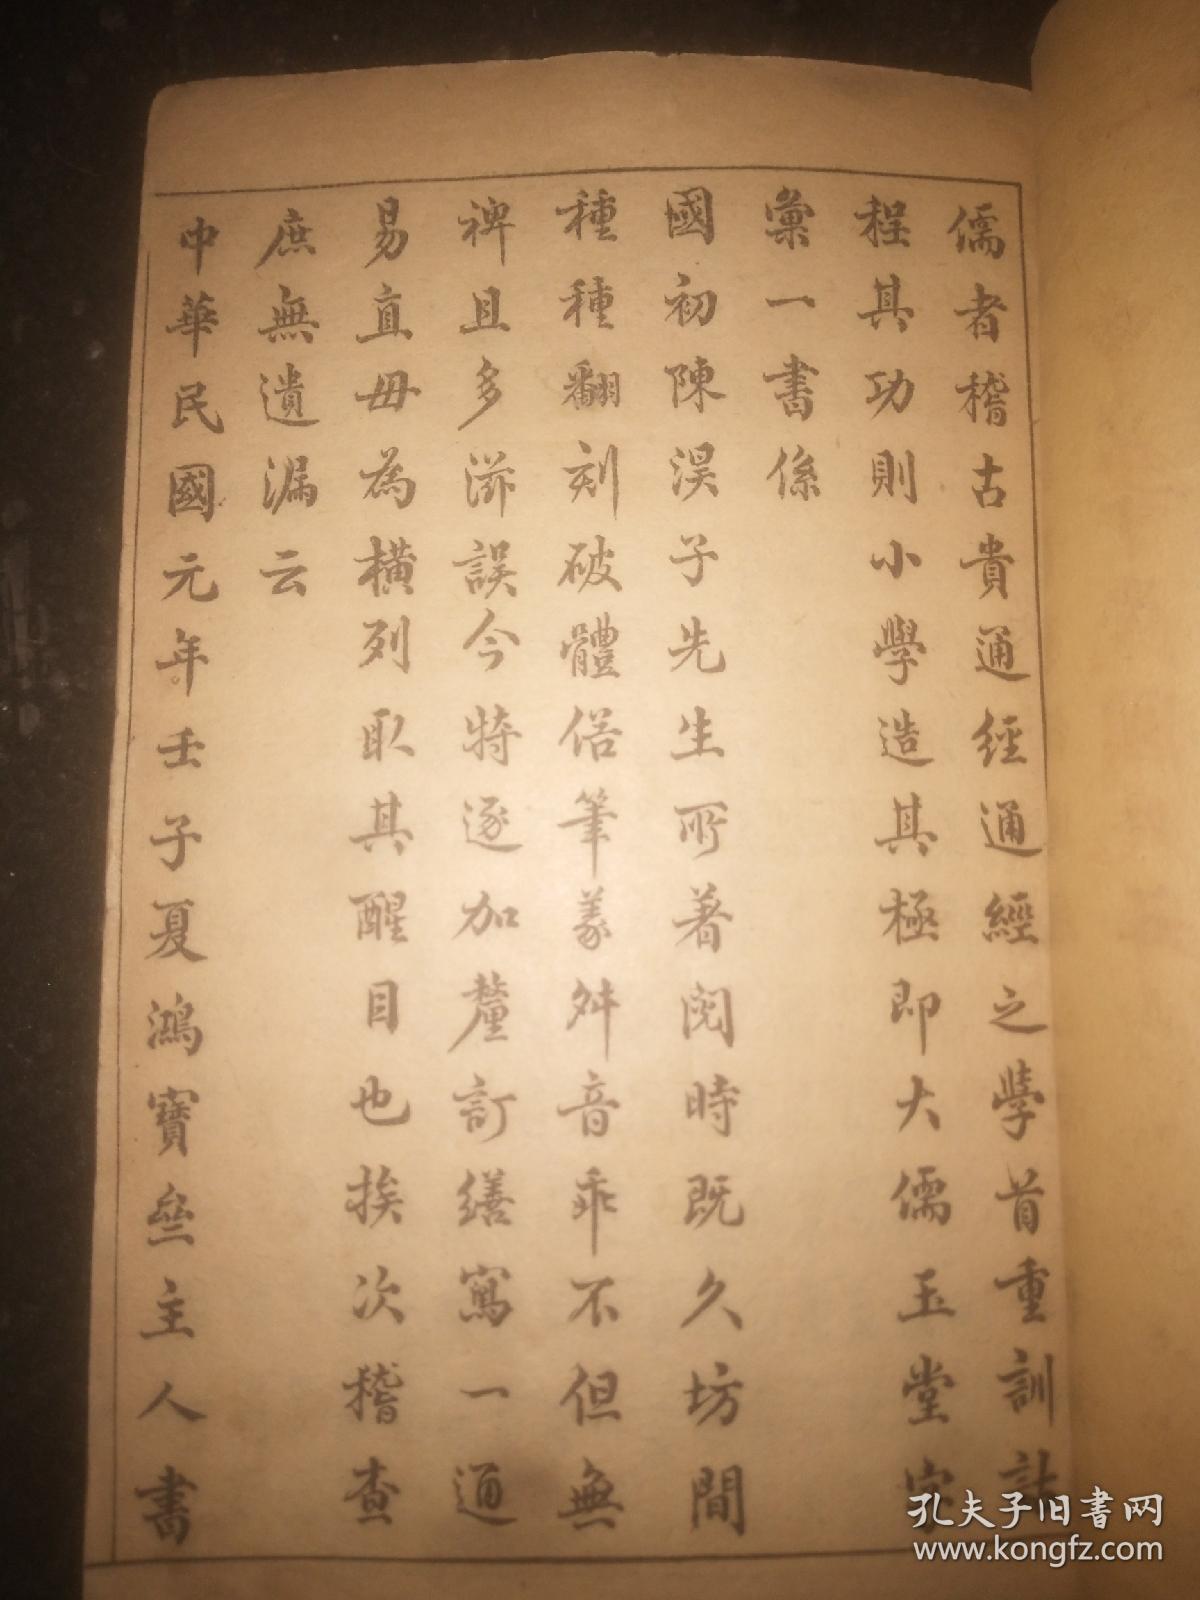 儒者稽古貴通經通經之學首重訓詁
程其功則小學造其極即大儒玉堂字
彙一書係
國初陳淏子先生所著閱時既久坊間
種種翻刻破體俗筆義舛音乖不但無
裨且多滋誤今特逐加釐訂繕寫一通
易直毋為橫列取其醒目也挨次稽查
庶無遺漏云
中華民國元年壬子夏鴻寶垒主人書
孔夫子旧书网
www.kongfz.com